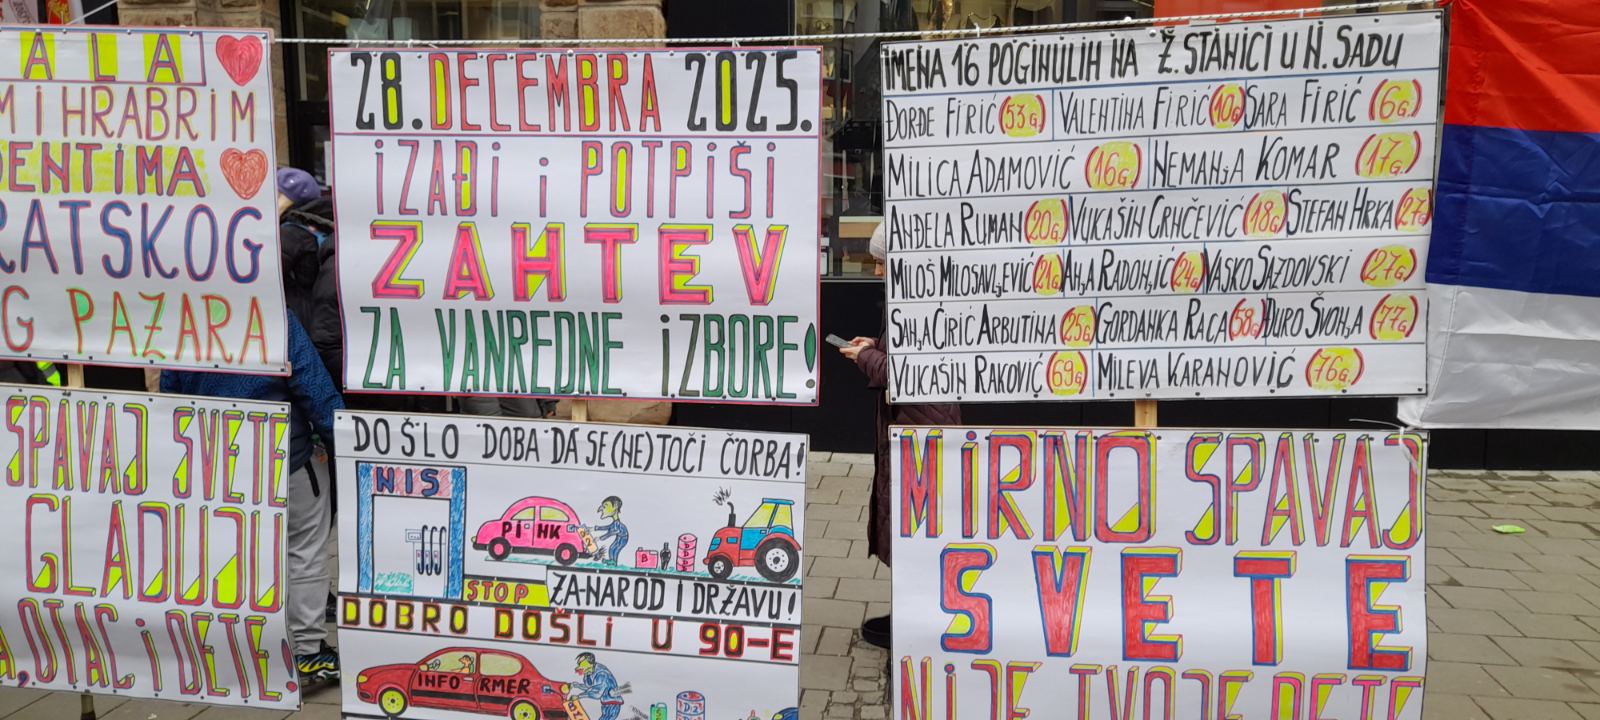 ALA
M I HRABRIM
DENTIMA
RATSKOG
G PAZARA
28. DECEMBRA 2025.
iZAĐi i POTPiŠi
ZAHTEV
ZA VANREDNE iZBORE!
iMENA 16 POGINULIH NA Ž. STANICI U N. SADU
ĐORĐE FIRIĆ (53G.) VALENTINA FIRIĆ (10G) SARA FIRIĆ (6G.)
MILICA ADAMOVIĆ (16G.) NEMANJA KOMAR (17G.)
ANĐELA RUMAN (20G.) VUKAŠIN CRNČEVIĆ (18G) STEFAN HRKA (27G)
MILOŠ MILOSAVLJEVIĆ (21G) ANJA RADONJIĆ (24G) VASKO SAZDOVSKI (27G.)
SANJA ĆIRIĆ ARBUTINA (25G) GORDANKA RACA (58G) ĐURO ŠVONJA (77G.)
VUKAŠIN RAKOVIĆ (69G) MILEVA KARANOVIĆ (76G.)
SPAVAJ SVETE
GLADUJU
A, OTAC i DETE!
DOŠLO DOBA DA SE (NE) TOČI ČORBA!
NIS
PINK
STOP
ZA-NAROD I DRŽAVU!
DOBRO DOŠLI U 90-E
INFORMER
D2
MiRNO SPAVAJ
SVETE
NiJE TVOJE DETE